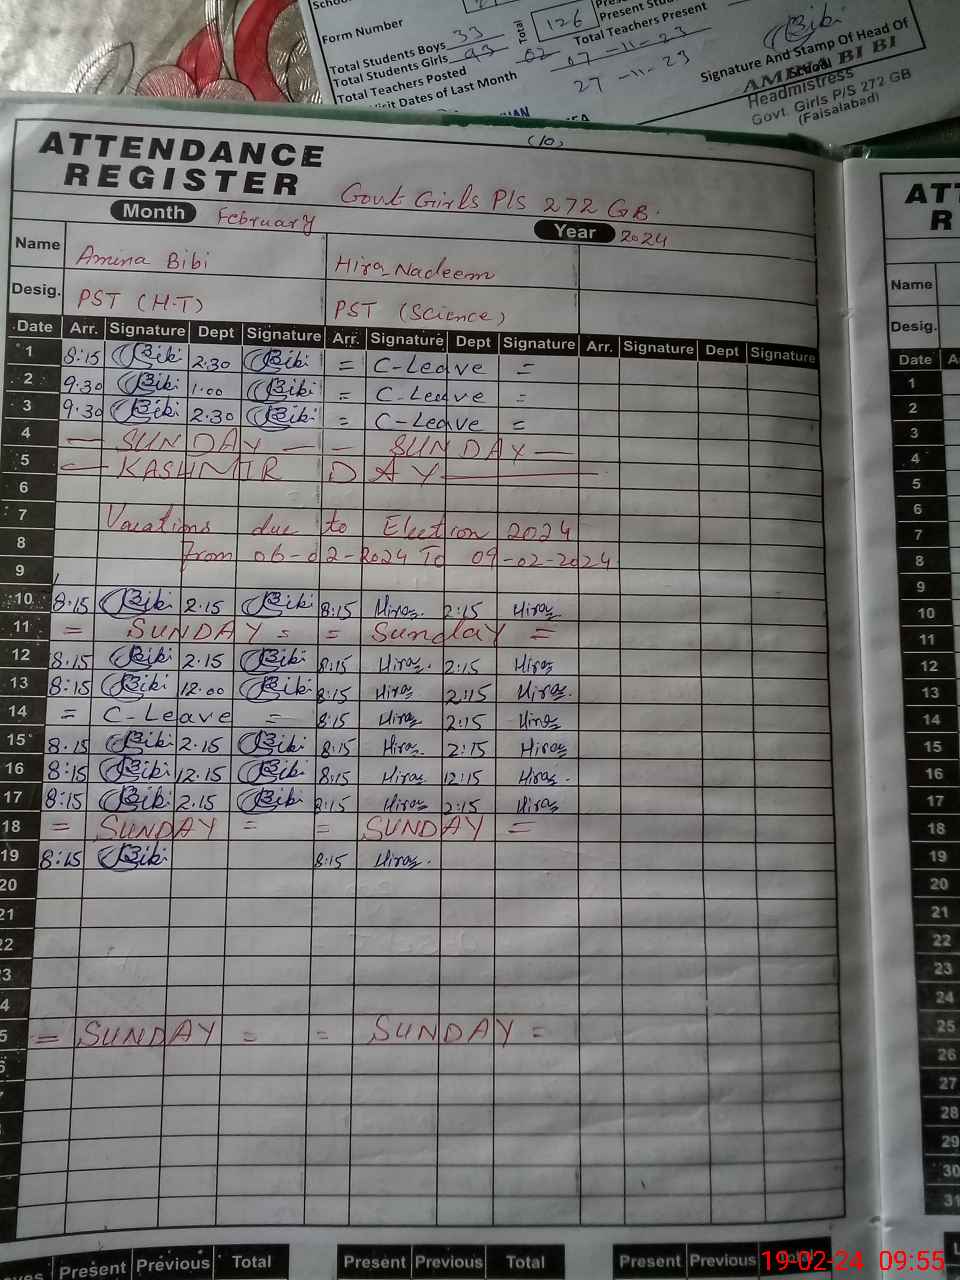 Form Number
Total Students Boys 33
Total Students Girls 93
Total 126
Total Teachers Posted 02
Total Teachers Present
07-11-23
isit Dates of Last Month 27-11-23
Bibi
Signature And Stamp Of Head Of
School
AMINA BI BI
Headmistress
Govt. Girls P/S 272 GB
(Faisalabad)
(10)
ATTENDANCE
REGISTER
Govt Girls P/S 272 GB.
Month February
Year 2024
Name Amina Bibi Hira Nadeem
Desig. PST (H-T) PST (Science)
Date Arr. Signature Dept Signature Arr. Signature Dept Signature Arr. Signature Dept Signature
1 8:15 Bibi 2.30 Bibi = C-Leave =
2 9.30 Bibi 1.00 Bibi = C-Leave =
3 9.30 Bibi 2.30 Bibi = C-Leave =
4 — SUNDAY — — SUNDAY —
5 — KASHMIR DAY —
6
7 Vacations due to Election 2024
8 From 06-02-2024 To 09-02-2024
9
10 8:15 Bibi 2.15 Bibi 8:15 Hira 2:15 Hira
11 = SUNDAY = = Sunday =
12 8.15 Bibi 2.15 Bibi 8:15 Hira 2:15 Hira
13 8:15 Bibi 12.00 Bibi 8:15 Hira 2:15 Hira
14 = C-Leave = 8:15 Hira 2:15 Hira
15 8.15 Bibi 2.15 Bibi 8:15 Hira 2:15 Hira
16 8:15 Bibi 12.15 Bibi 8:15 Hira 12:15 Hira
17 8:15 Bibi 2.15 Bibi 8:15 Hira 2:15 Hira
18 = SUNDAY = = SUNDAY =
19 8:15 Bibi 8:15 Hira
20
21
22
23
24
25 = SUNDAY = = SUNDAY =
Present Previous Total Present Previous Total Present Previous
Name
Desig.
Date
1
2
3
4
5
6
7
8
9
10
11
12
13
14
15
16
17
18
19
20
21
22
23
24
25
26
27
28
29
30
31
19-02-24 09:55